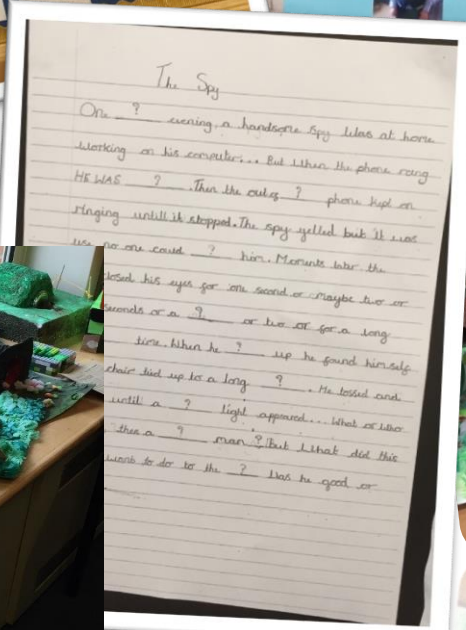 The Spy
One ? evening, a handsome spy was at home
working on his computer... But when the phone rang
HE WAS ? . Then the out of ? phone kept on
ringing untill it stopped. The spy yelled but it was
no one could ? him. Moments later the
losed his eyes for one second or maybe two or
seconds or a ? or two or for a long
time. When he ? up he found himself
chair tied up to a long ? . He tossed and
untill a ? light appeared... What or who
then a ? man? But what did this
want to do to the ? Was he good or